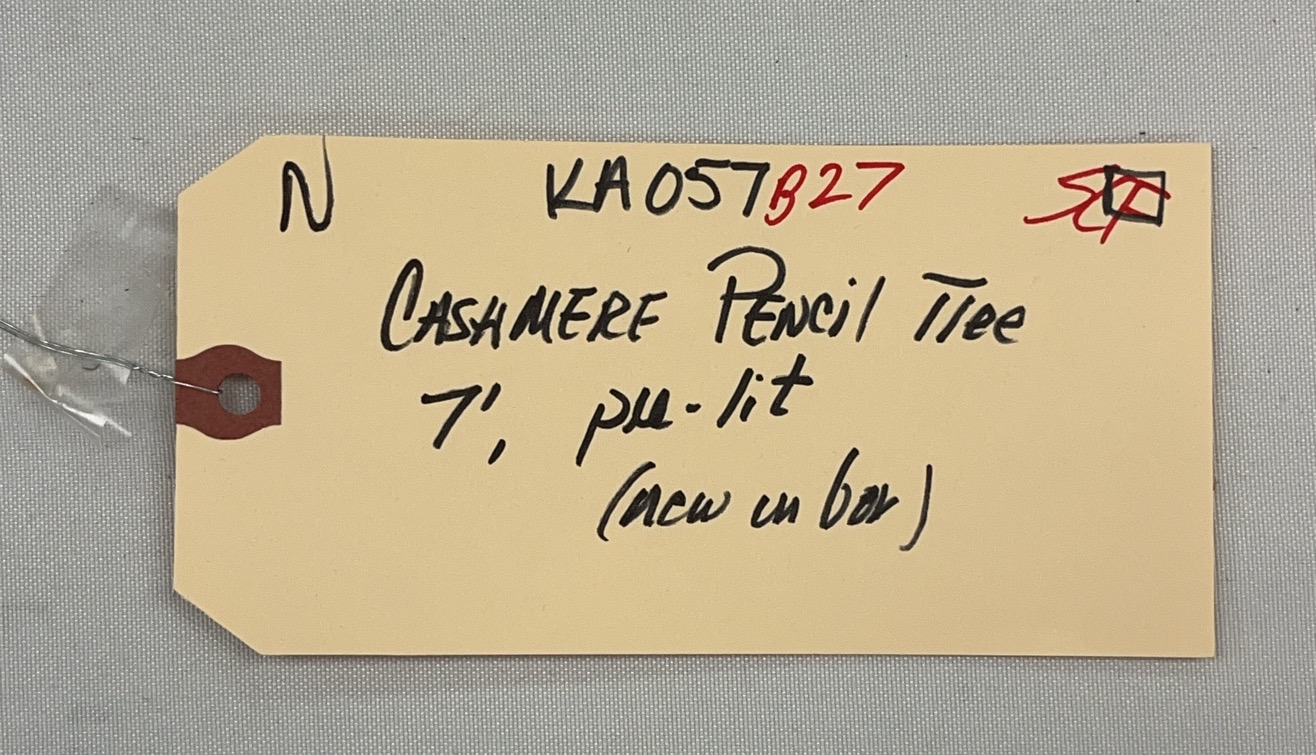 N KA057B27
CASHMERE PENCil Tree
7', pre-lit
(new in box)